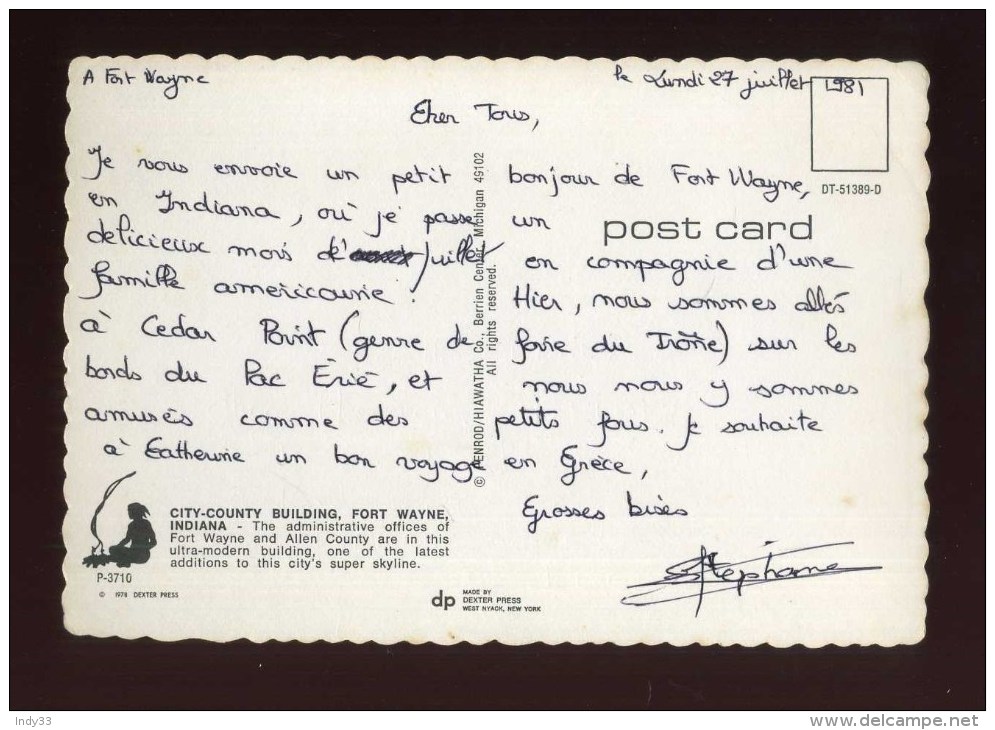 A Fort Wayne
le Lundi 27 juillet 1981
Cher Tous,
Je vous envoie un petit bonjour de Fort Wayne,
en Indiana, où je passe un
délicieux mois de juillet en compagnie d'une
famille americaine. Hier, nous sommes allés
à Cedar Point (genre de foire du Trône) sur les
bords du Lac Érié, et nous nous y sommes
amusés comme des petits fous. Je souhaite
à Catherine un bon voyage en Grèce,
Grosses bises
Stéphane
DT-51389-D
post card
© PENROD/HIAWATHA Co., Berrien Center, Michigan 49102
All rights reserved.
CITY-COUNTY BUILDING, FORT WAYNE,
INDIANA - The administrative offices of
Fort Wayne and Allen County are in this
ultra-modern building, one of the latest
additions to this city's super skyline.
P-3710
© 1978 DEXTER PRESS
dp
MADE BY
DEXTER PRESS
WEST NYACK, NEW YORK
Indy33
www.delcampe.net